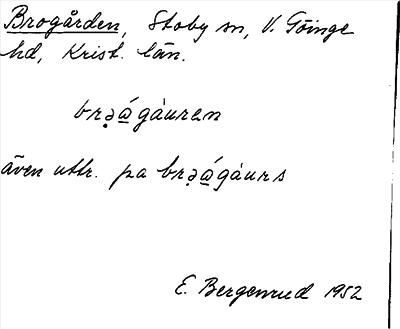 Brogården, Stoby sn, V. Göinge
hd, Krist. län.
brǝá̱gàuren
även uttr. pa brǝá̱gàurs
E. Bergenrud 1952